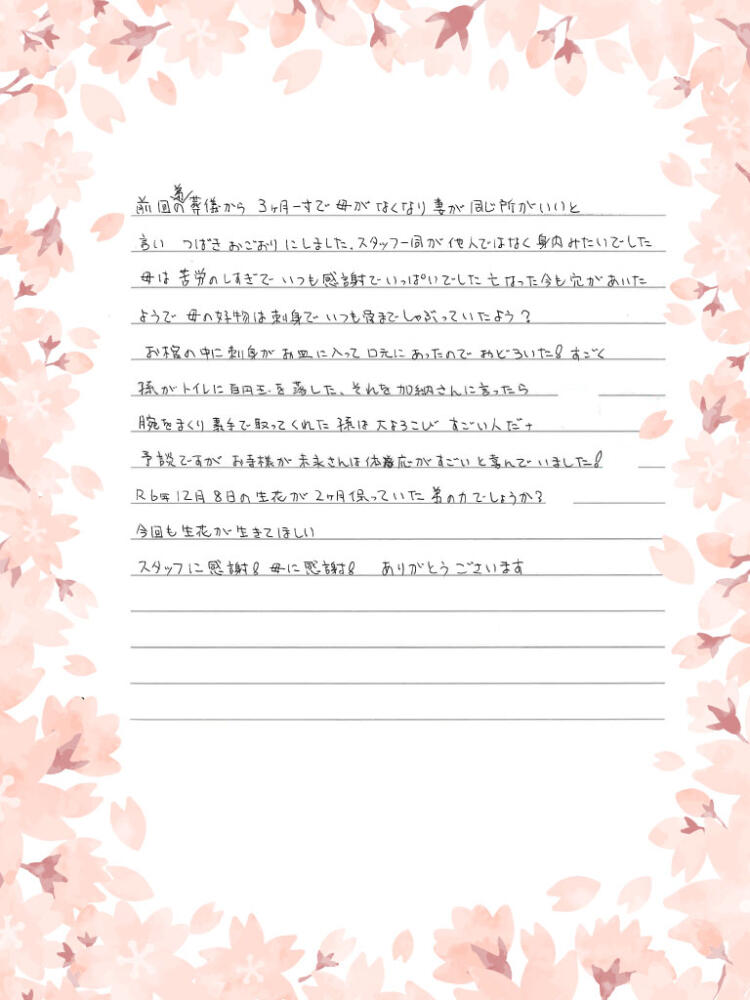 前回の弟葬儀から 3ヶ月一寸で母がなくなり妻が同じ所がいいと
言い つばきおごおりにしました、スタッフ一同が他人ではなく身内みたいでした
母は苦労のしすぎで いつも感謝でいっぱいでした 亡なった今も穴があいた
ようで 母の好物は刺身で いつも骨までしゃぶっていたよう?
お棺の中に刺身がお皿に入って口元にあったのでおどろいた! すごく
孫がトイレに百円玉を落した、それを加納さんに言ったら
腕をまくり素手で取ってくれた 孫は大よろこび すごい人だナ
予談ですが お寺様が 末永さんは体 応がすごいと喜んでいました!
R6年12月8日の生花が2ヶ月保っていた 弟の力でしょうか?
今回も生花が生きてほしい
スタッフに感謝! 母に感謝! ありがとうございます